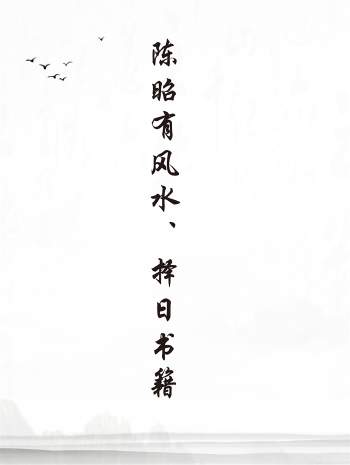 陈昭有风水、择日书籍